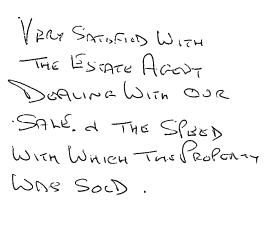 VERY SATISFIED WITH
THE ESTATE AGENT
DEALING WITH OUR
SALE. & THE SPEED
WITH WHICH THE PROPERTY
WAS SOLD.